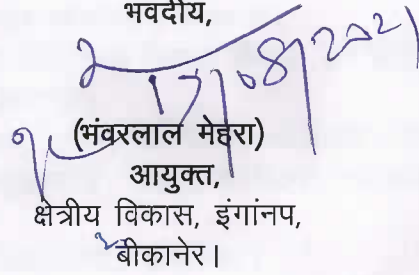 भवदीय,
17/08/2021
(भंवरलाल मेहरा)
आयुक्त,
क्षेत्रीय विकास, इंगांनप,
बीकानेर।